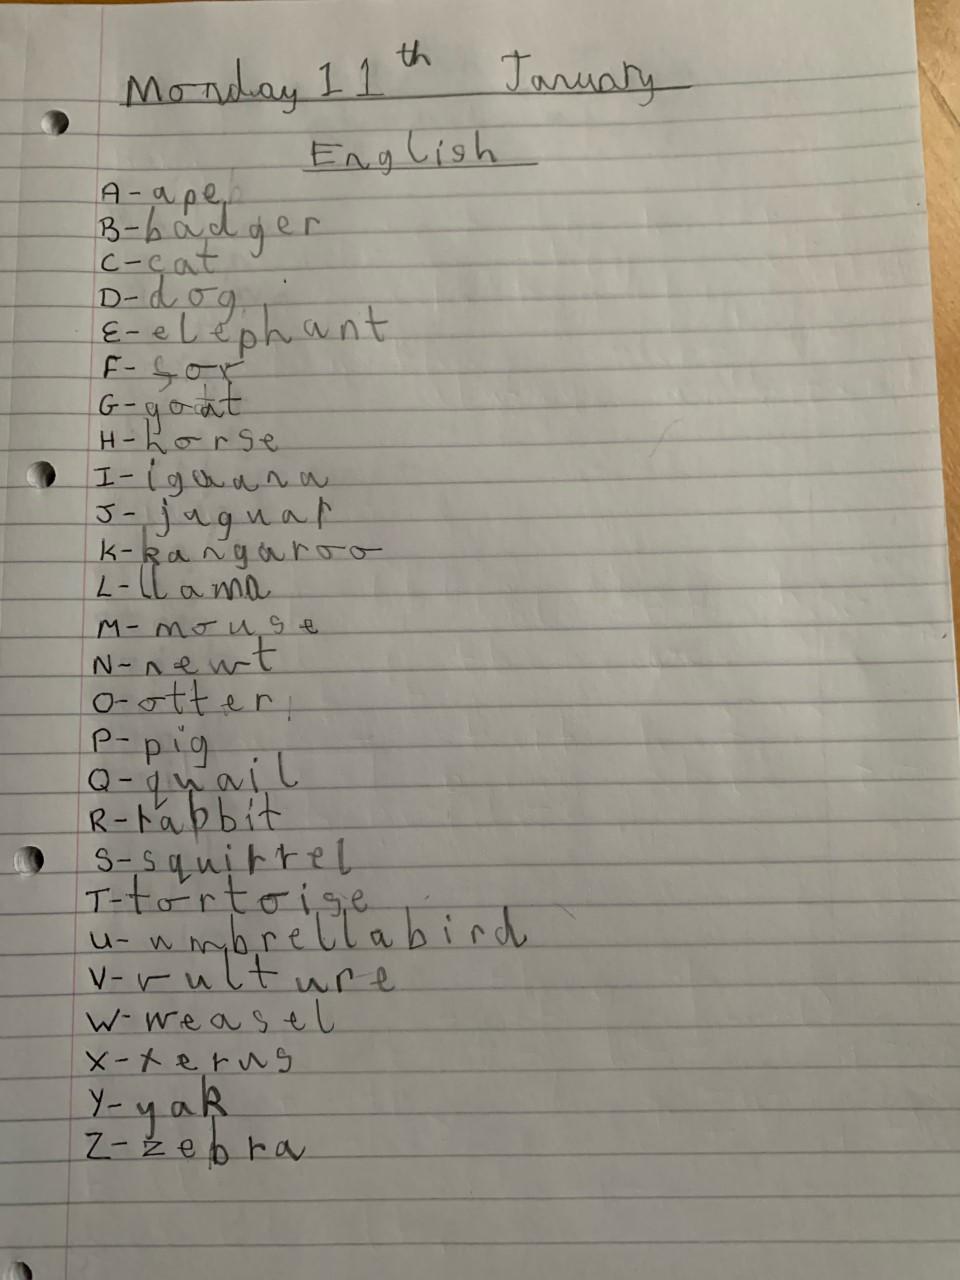 Monday 11th January
English
A-ape
B-badger
C-cat
D-dog
E-elephant
F-fox
G-goat
H-horse
I-iguana
J-jaguar
K-kangaroo
L-llama
M-mouse
N-newt
O-otter
P-pig
Q-quail
R-rabbit
S-squirrel
T-tortoise
U-umbrellabird
V-vulture
W-weasel
X-xerus
Y-yak
Z-zebra